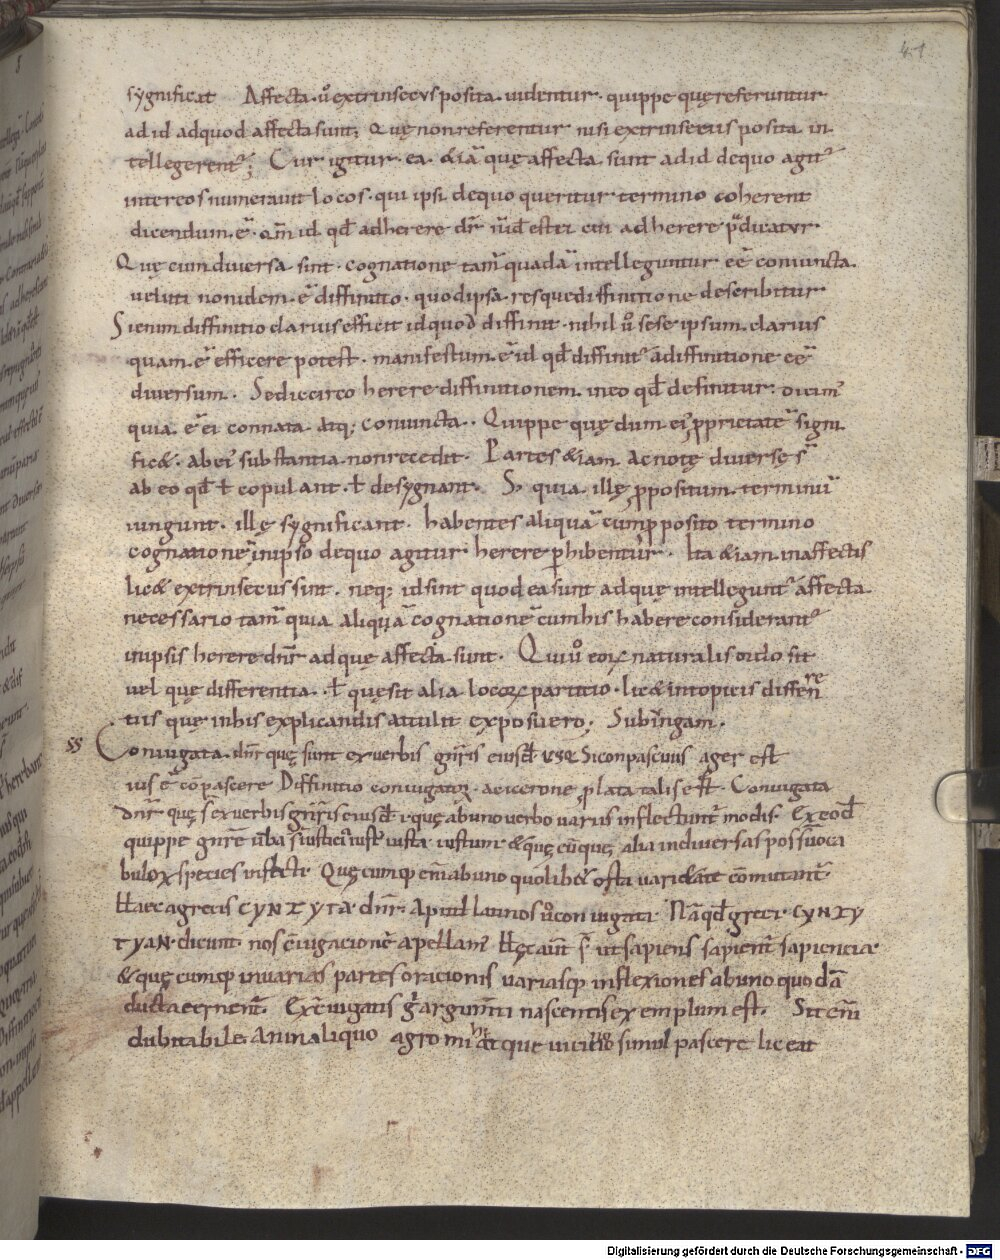 41
sygnificat Affecta. ůo extrinsecus posita. uidentur. quippe quę referuntur
ad id ad quod affecta sunt; Quę non referentur nisi extrinsecus posita in
tellegerent᷑; Cur igitur. ea. &iā quę affecta sunt ad id de quo agit᷑
inter eos numerauit locos. qui ipsi. de quo queritur termino coherent
dicendum. ē. qm̄ id qđ adherere dr̄ iđ est ei cui adherere p̄dicatur.
Quę cum diuersa sint. cognatione tam̄ quadā intelleguntur eē coniuncta.
ueluti non idem. ē diffinitio. quod ipsa. res que diffinitione describitur
Si enim diffinitio clarius efficit id quod diffinit. nihil ů sese ipsum. clarius
quam. ē efficere potest. manifestum. ē id qđ diffinit᷑ a diffinitione eē
diuersum. Sed iccirco herere diffinitionem. in eo qđ definitur. dicim᷒
quia. ē ei connata atq; coniuncta. Quippe quę dum ei᷒ ꝓprietatē signi
fic&. ab ei᷒ substantia non recedit. Partes &iam ac notę diuersę s̄
ab eo qđ ł copulant. ł desygnant. S; quia. illę ꝓpositum. terminū
iungunt. illę sygnificant. habentes aliquā cum ꝓposito termino
cognationē in ipso de quo agitur herere ꝑhibentur. Ita &iam in affectis
lic& extrinsecus sint. neq; id sint quod ea sunt ad quę intellegunt᷑ affecta
necessario tam̄ quia aliquā cognationē cum his habere considerant᷑
in ipsis herere dn̄r ad que affecta sunt. Qui ů eoꝝ naturalis ordo sit
uel quę differentia. ł quę sit alia locoꝝ partitio. lic& in topicis differen
tiis quę in his explicandis attulit exposuero; Subiungam.
Coniugata. dn̄r quę sunt ex uerbis gn̄ris eiusđ usq. Si conpascuus ager est
ius ē cōpascere Diffinitio coniugatoꝝ. a cicerone ꝓlata talis est. Coniugata
dn̄r quę s̄ ex uerbis gn̄ris eiusđ quę ab uno uerbo uariis inflectunt᷑ modis. Ex eođ
quippe gn̄re uba s̄ iusticia iust᷒ iusta iustum &quę cūque alia in diuersas poss̄ uoca
buloꝝ species inflecti. Quę cumq; enī ab uno quolib& ofta uari&ate cōmutant᷑
Haec a grecis CYNZYΓA dn̄r. Apud latinos ů coniugata. Nā qđ greci CYNZY
ΓYAN. dicunt. nos cōiugacionē apellam᷒ Hęc aut̄ s̄ ut sapiens sapient᷑ sapiencia
&quę cumq; in uarias partes oracionis uariasq; inflexiones ab uno quodā
ducta cernent᷑. Ex cōiugatis g̊ argum̄ti nascentis exemplum est. Sit enī
dubitabile. An in aliquo agro mihi atque uicino simul pascere liceat
Digitalisierung gefördert durch die Deutsche Forschungsgemeinschaft - DFG